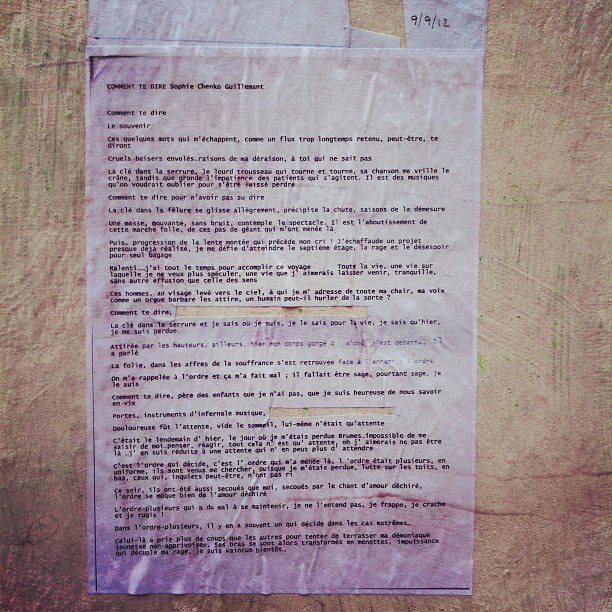 9/9/12
COMMENT TE DIRE Sophie Chenko Guillemant
Comment te dire
Le souvenir
Ces quelques mots qui m'échappent, comme un flux trop longtemps retenu, peut-être, te
diront
Cruels baisers envolés…raisons de ma déraison, à toi qui ne sait pas
La clé dans la serrure, le lourd trousseau qui tourne et tourne, sa chanson me vrille le
crâne, tandis que gronde l'impatience des patients qui s'agitent. Il est des musiques
qu'on voudrait oublier pour s'être laissé perdre
Comment te dire pour n'avoir pas su dire
La clé dans la fêlure se glisse allègrement, précipite la chute, saisons de la démesure
Une masse, mouvante, sans bruit, contemple le spectacle. Il est l'aboutissement de
cette marche folle, de ces pas de géant qui m'ont menée là
Puis, progression de la lente montée qui précède mon cri ! J'échafaude un projet
presque déjà réalisé, je me défie d'atteindre le septième étage, la rage et le désespoir
pour seul bagage
Ralenti……j'ai tout le temps pour accomplir ce voyage Toute la vie, une vie sur
laquelle je ne veux plus spéculer, une vie que j' aimerais laisser venir, tranquille,
sans autre effusion que celle des sens
Ces hommes, au visage levé vers le ciel, à qui je m' adresse de toute ma chair, ma voix
comme un orgue barbare les attire, un humain peut-il hurler de la sorte ?
Comment te dire,
La clé dans la serrure et je sais où je suis, je le sais pour la vie, je sais qu'hier,
je me suis perdue
Attirée par les hauteurs, ailleurs, hier mon corps gorgé d' s'est il
a parlé
La folie, dans les affres de la souffrance s'est retrouvée face à l' l'ordre
On m'a rappelée à l'ordre et ça m'a fait mal ; il fallait être sage, pourtant sage, je
le suis
Comment te dire, père des enfants que je n'ai pas, que je suis heureuse de nous savoir
en vie
Portes, instruments d'infernale musique,
Douloureuse fût l'attente, vide le sommeil, lui-même n'était qu'attente
C'était le lendemain d' hier, le jour où je m'étais perdue Brumes…impossible de me
saisir de moi…penser, réagir, tout cela n' est qu' attente, oh j' aimerais ne pas être
là …j' en suis réduite à une attente qui n' en peut plus d' attendre
C'est l'ordre qui décide, c'est l' ordre qui m'a menée là, l 'ordre était plusieurs, en
uniforme, ils sont venus me chercher, puisque je m'étais perdue, lutte sur les toits, en
bas, ceux qui, inquiets peut-être, n'ont pas ri
Ce soir, ils ont été aussi secoués que moi, secoués par le chant d'amour déchiré,
l'ordre se moque bien de l'amour déchiré
L'ordre-plusieurs qui a du mal à se maintenir, je ne l'entend pas, je frappe, je crache
et je rugis !
Dans l'ordre-plusieurs, il y en a souvent un qui décide dans les cas extrêmes…
Celui-là a pris plus de coups que les autres pour tenter de terrasser ma démoniaque
jeunesse non-apprivoisée. Ses bras se sont alors transformés en menottes, impuissance
qui décuple ma rage, je suis vaincue bientôt…